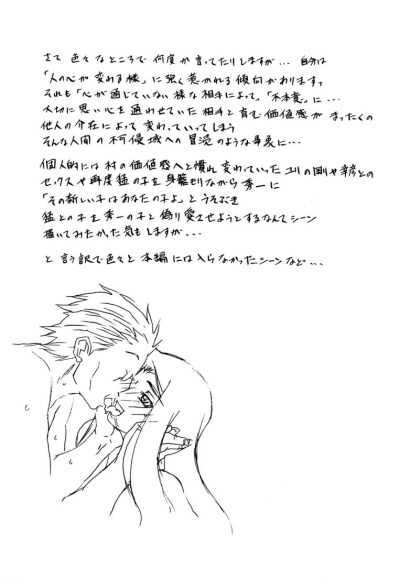 さて 色々なところで何度か言ってたりしますが… 自分は
「人の心が変わる様」に強く惹かれる傾向がありますッ
それも「心が通じていない様な相手によって」、「不本意」に…
大切に思い心を通わせていた相手と育む価値感が まったくの
他人の介在によって変わっていってしまう
そんな人間の不可侵域への冒涜のような事態に…
個人的には村の価値感へと慣れ変わっていったユリの
セックスや再度猛の子を身籠もりながら秀一に
「その新しい子はあなたの子よ」とうそぶき
猛との子を秀一の子と偽り愛させようとするなんてシーン
描いてみたかった気もしますが…
と言う訳で色々と本編には入らなかったシーンなど…